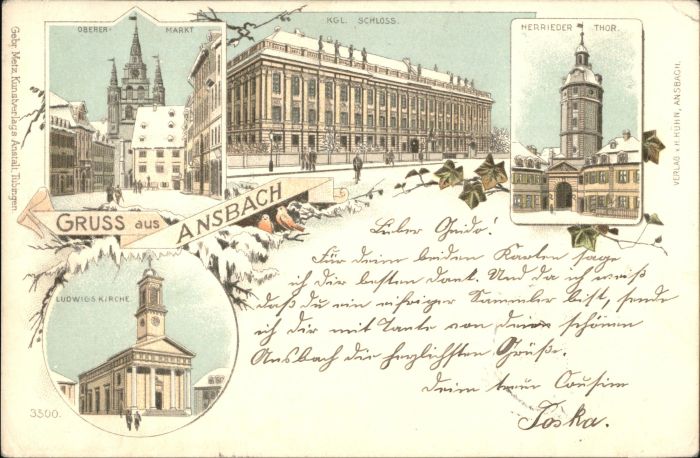 OBERER- MARKT
KGL. SCHLOSS.
HERRIEDER THOR.
Gebr. Metz, Kunstverlags Anstalt, Tübingen
VERLAG v. H. HÜHN, ANSBACH.
GRUSS aus ANSBACH
LUDWIGSKIRCHE
3500.
Lieber Guido!
Für deine beiden Karten sage
ich dir besten Dank. Und da ich weiß
daß du ein eifriger Sammler bist, sende
ich dir mit Tante von schönen
Ansbach die herzlichsten Grüße.
Deine treue Cousine
Toska.